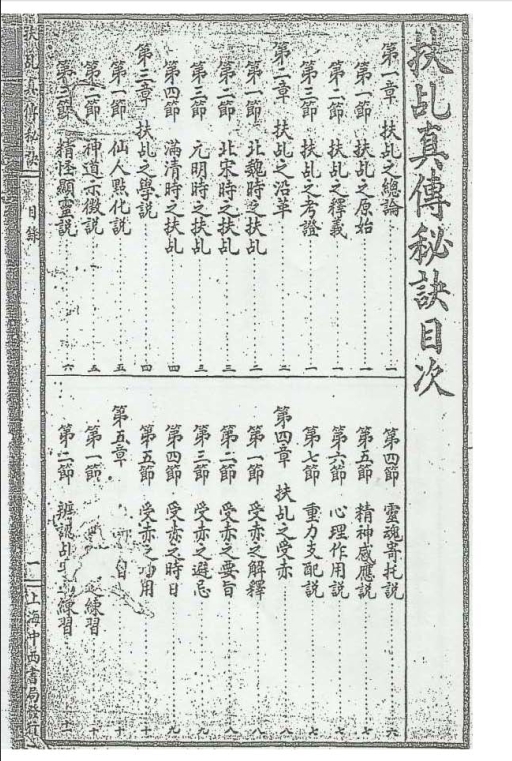 扶乩真傳秘訣目次
第一章 扶乩之總論 一
第一節 扶乩之原始 一
第二節 扶乩之釋義 一
第三節 扶乩之考證 一
第二章 扶乩之沿革 二
第一節 北魏時之扶乩 二
第二節 北宋時之扶乩 三
第三節 元明時之扶乩 三
第四節 滿清時之扶乩 四
第三章 扶乩之學說 四
第一節 仙人點化說 五
第二節 神道示徵說 五
第三節 精怪顯靈說 六
第四節 靈魂寄托說 六
第五節 精神感應說 七
第六節 心理作用說 七
第七節 重力支配說 七
第四章 扶乩之受赤 八
第一節 受赤之解釋 八
第二節 受赤之要旨 八
第三節 受赤之避忌 九
第四節 受赤之時日 九
第五節 受赤之功用 十
第五章
第一節 練習 十
第二節 辨認乩 練習 十一
扶乩真傳秘訣 目錄 一 上海中西書局發行